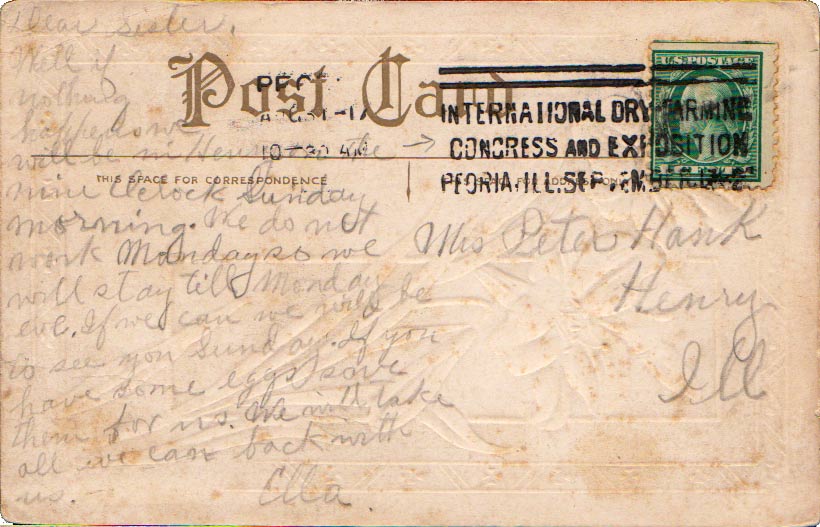 Dear Sister,
Well if
nothing
happens we
will be in Henry on the
nine Oclock Sunday
morning. We do not
work Monday so we
will stay till Monday
eve. If we can we will be
to see you Sunday. If you
have some eggs save
them for us. We will take
all we can back with
us.
Ella
Post Card
THIS SPACE FOR CORRESPONDENCE
10-30 AM
INTERNATIONAL DRY FARMING
CONGRESS AND EXPOSITION
PEORIA, ILL. SEP.
U.S. POSTAGE
Mrs Peter Hank
Henry
Ill